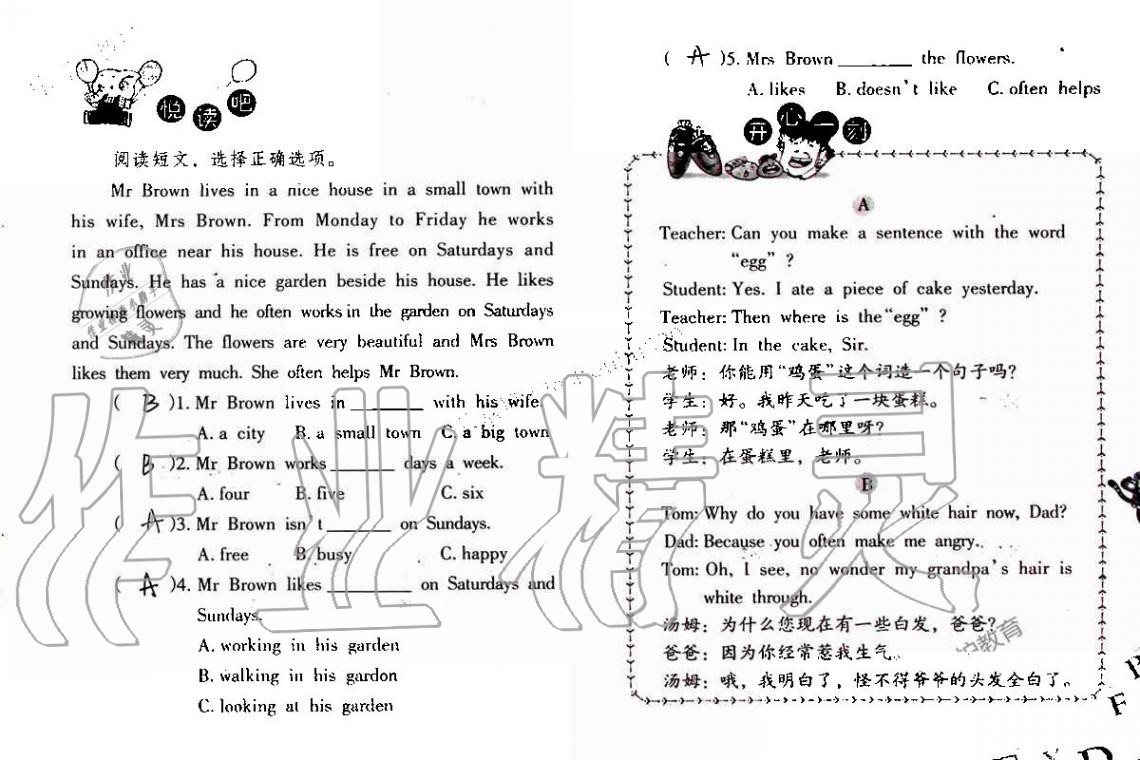 悦读吧
阅读短文，选择正确选项。
Mr Brown lives in a nice house in a small town with
his wife, Mrs Brown. From Monday to Friday he works
in an office near his house. He is free on Saturdays and
Sundays. He has a nice garden beside his house. He likes
growing flowers and he often works in the garden on Saturdays
and Sundays. The flowers are very beautiful and Mrs Brown
likes them very much. She often helps Mr Brown.
( B )1. Mr Brown lives in ________ with his wife.
A. a city B. a small town C. a big town
( B )2. Mr Brown works ________ days a week.
A. four B. five C. six
( A )3. Mr Brown isn't ________ on Sundays.
A. free B. busy C. happy
( A )4. Mr Brown likes ________ on Saturdays and
Sundays.
A. working in his garden
B. walking in his gardon
C. looking at his garden
( A )5. Mrs Brown ________ the flowers.
A. likes B. doesn't like C. often helps
开心一刻
A
Teacher: Can you make a sentence with the word
"egg"?
Student: Yes. I ate a piece of cake yesterday.
Teacher: Then where is the "egg"?
Student: In the cake, Sir.
老师：你能用"鸡蛋"这个词造一个句子吗？
学生：好。我昨天吃了一块蛋糕。
老师：那"鸡蛋"在哪里呀？
学生：在蛋糕里，老师。
B
Tom: Why do you have some white hair now, Dad?
Dad: Because you often make me angry.
Tom: Oh, I see, no wonder my grandpa's hair is
white through.
汤姆：为什么您现在有一些白发，爸爸？
爸爸：因为你经常惹我生气。
汤姆：哦，我明白了，怪不得爷爷的头发全白了。
作业精灵
教育